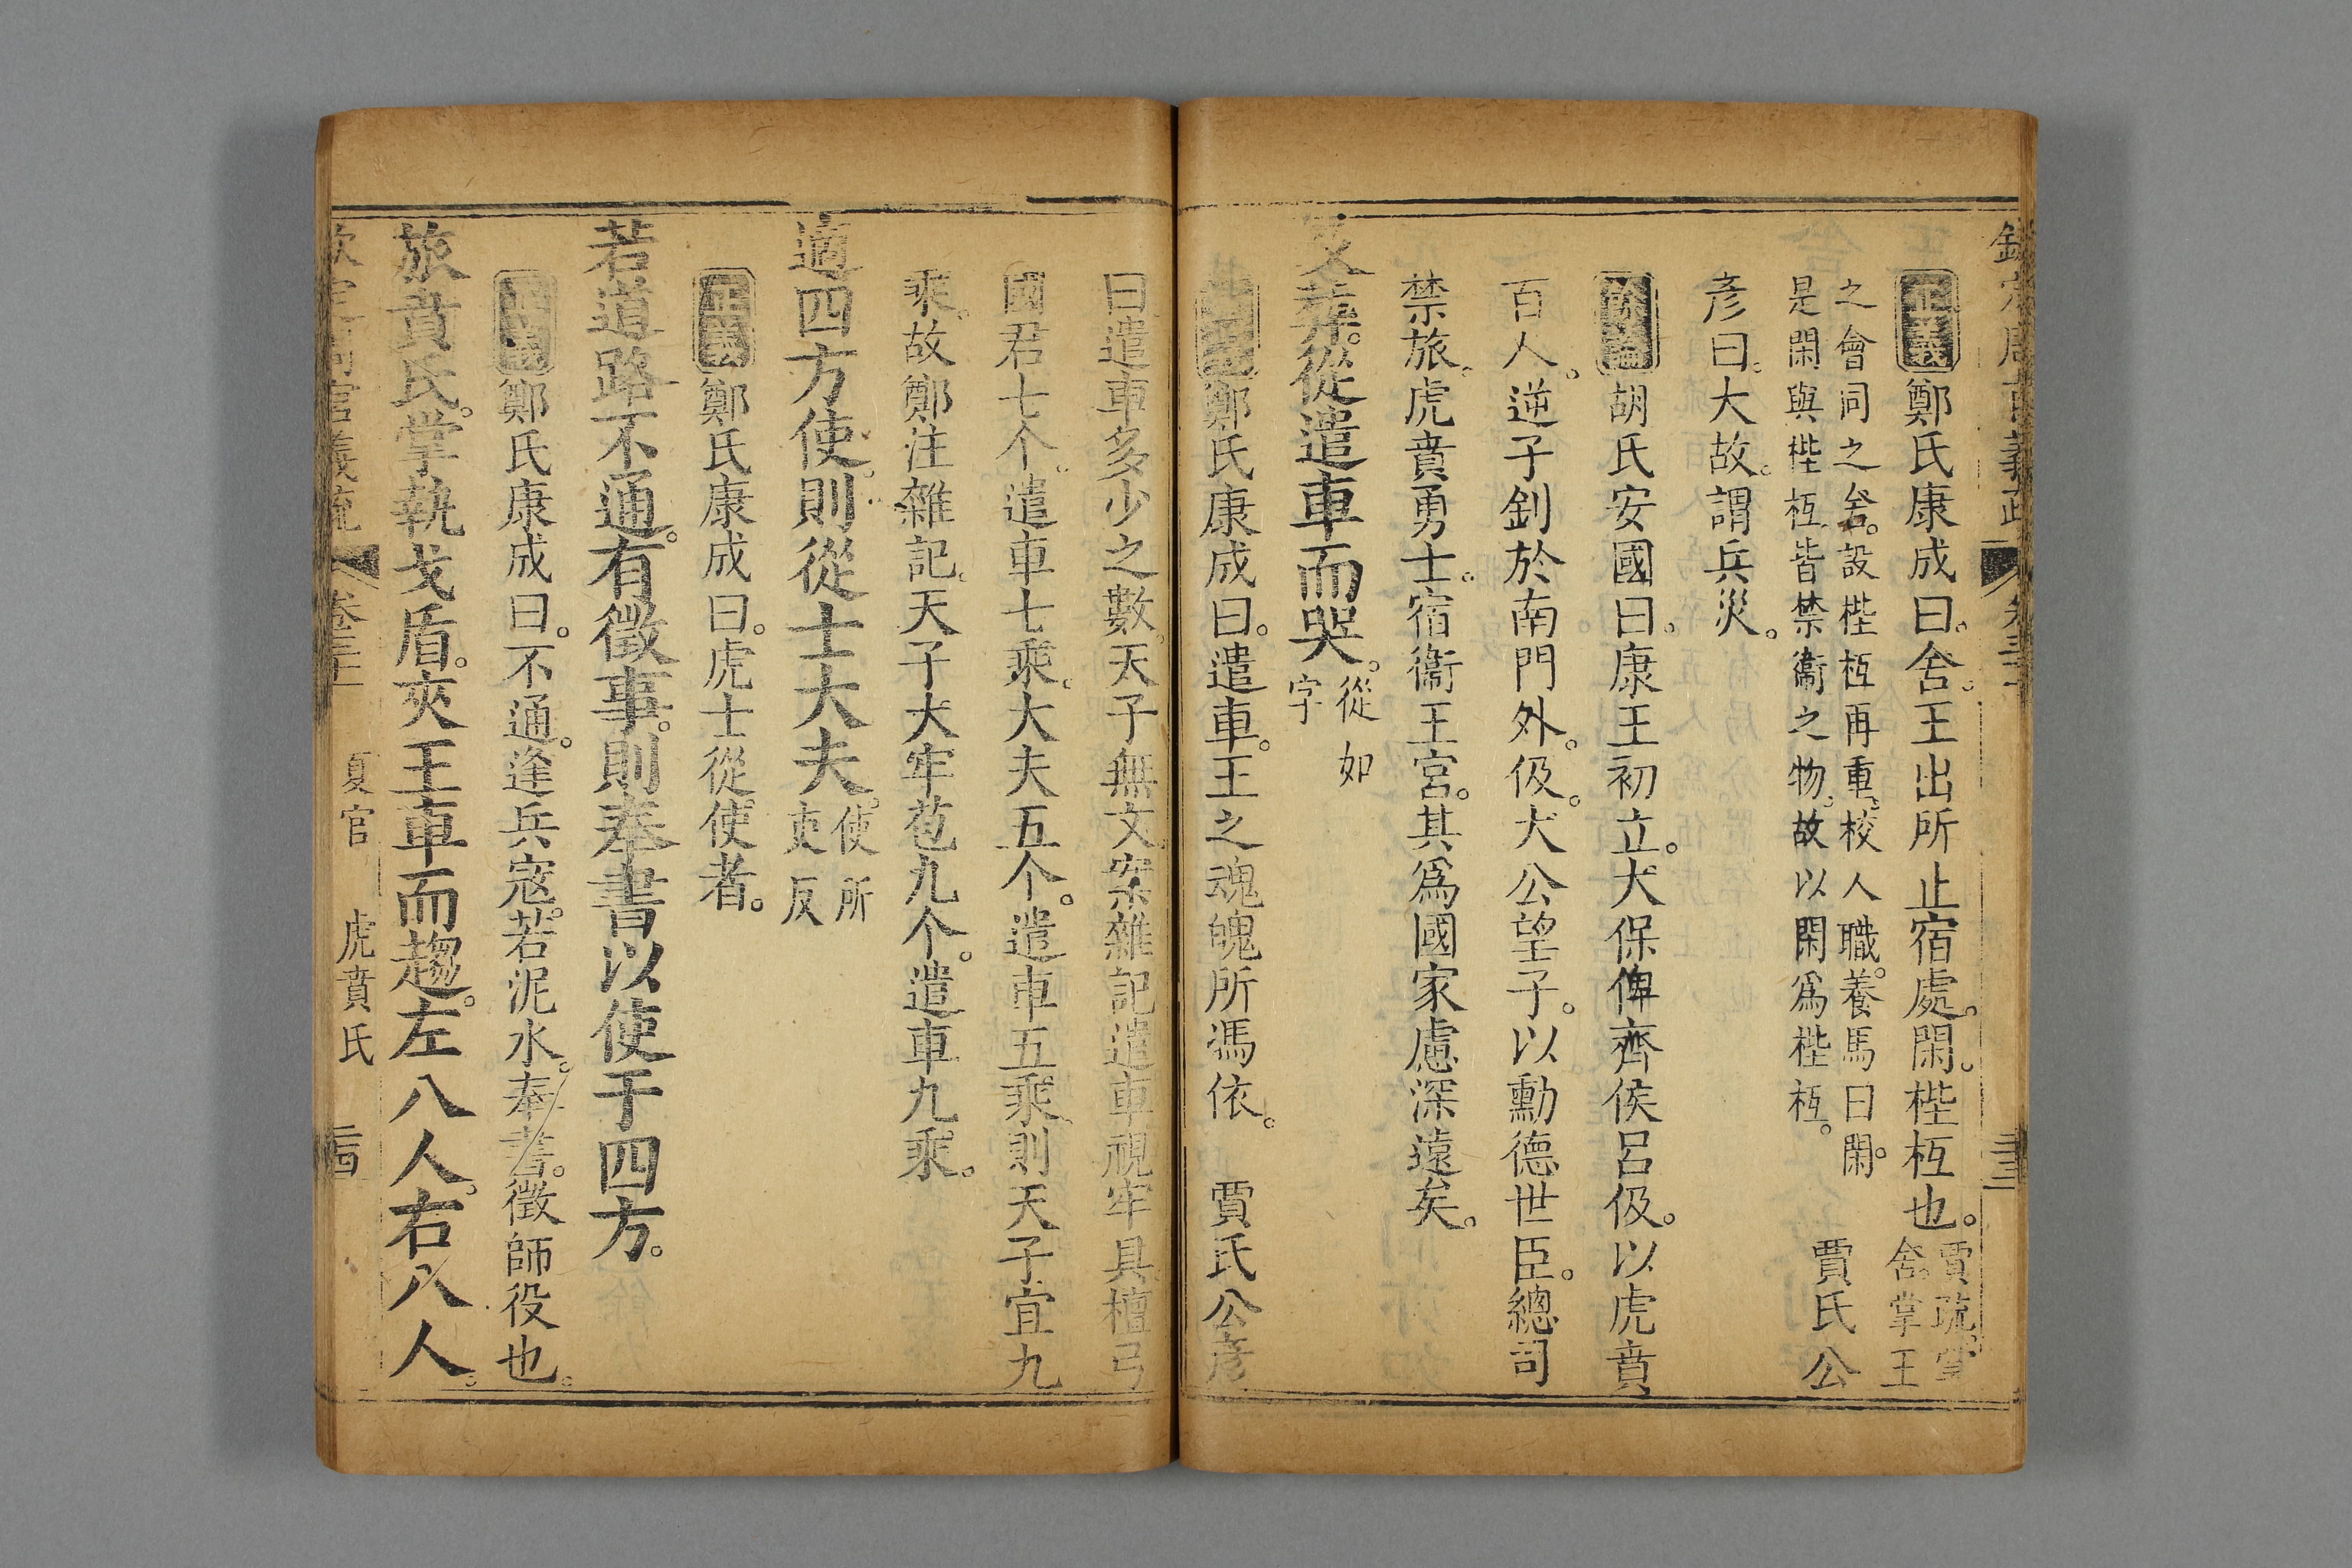 欽定周官義疏 卷三十
正義鄭氏康成曰。舍。王出所止宿處。閑。梐枑也。賈疏。掌
舍。掌王
之會同之舍。設梐枑再重。校人職。養馬曰閑。
是閑與梐枑皆禁衞之物。故以閑爲梐枑。
賈氏公
彦曰。大故。謂兵災。
餘論胡氏安國曰。康王初立。太保俾齊侯呂伋。以虎賁
百人。逆子釗於南門外。伋。太公望子。以勳德世臣。總司
禁旅。虎賁勇士。宿衞王宮。其爲國家慮深遠矣。
及葬。從遣車而哭。從如
字
正義鄭氏康成曰。遣車。王之魂魄所馮依。 賈氏公彦
曰遣車多少之數。天子無文。案雜記遣車視牢具。檀弓
國君七个。遣車七乘。大夫五个。遣車五乘。則天子宜九
乘。故鄭注雜記。天子大牢苞九个。遣車九乘。
適四方使。則從士大夫。使所
吏反
正義鄭氏康成曰。虎士從使者。
若道路不通。有徵事。則奉書以使于四方。
正義鄭氏康成曰。不通。逢兵寇。若泥水。奉書。徵師役也。
旅賁氏。掌執戈盾。夾王車而趨。左八人。右八人。
欽定周官義疏 卷三十 夏官 虎賁氏 二四